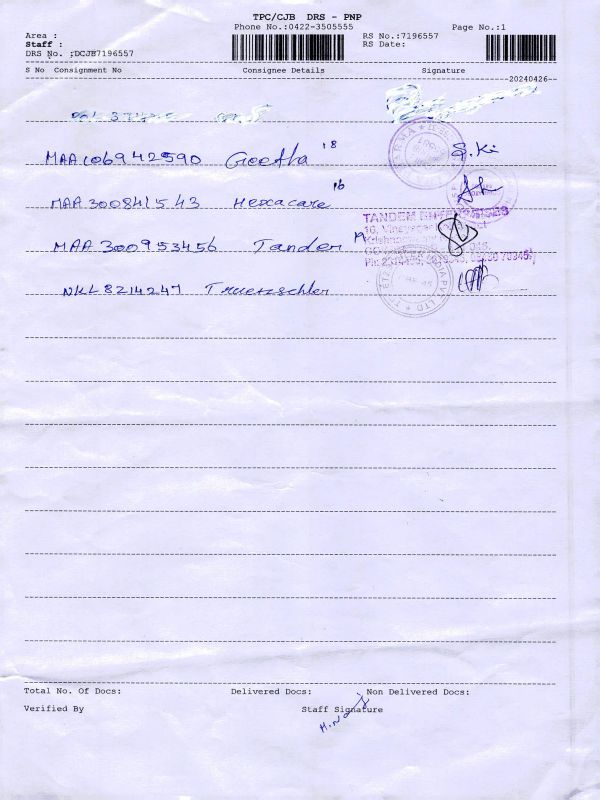 TPC/CJB DRS - PNP
Phone No.:0422-3505555 Page No.:1
Area : RS No.:7196557
Staff : RS Date:
DRS No. ;DCJB7196557
S No Consignment No Consignee Details Signature
20240426
MAA106942590 Geetha 18 S.Ki
MAA300841543 Hexacare 16
MAA300953456 Tander 19
TANDEM
NKL8214247 Truetzschler
Total No. Of Docs: Delivered Docs: Non Delivered Docs:
Verified By Staff Signature